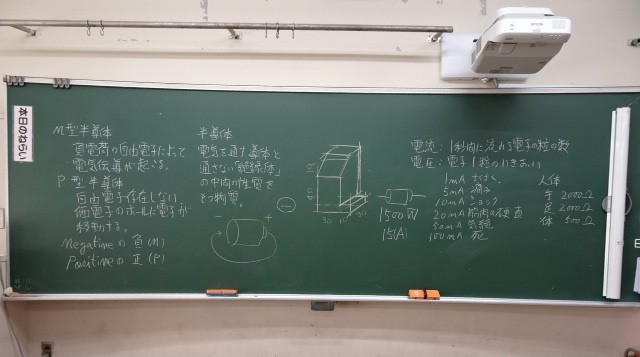 本日のねらい
N型半導体
負電荷の自由電子によって
電気伝導が起こる。
P型半導体
自由電子存在しない
価電子のホールに電子が
移動する。
Negativeの負(N)
Positiveの正(P)
半導体
電気を通す導体と
通さない「絶縁体」
の中間の性質を
もつ物質。
- +
30 10 30
1500W
15(A)
電流:1秒間に流れる電子の粒の数
電圧:電子1粒のいきおい
1mA
5mA 痛み
10mA ショック
20mA 筋肉の硬直
50mA 気絶
100mA 死
人体
手 2000Ω
足 2000Ω
体 500Ω
EPSON